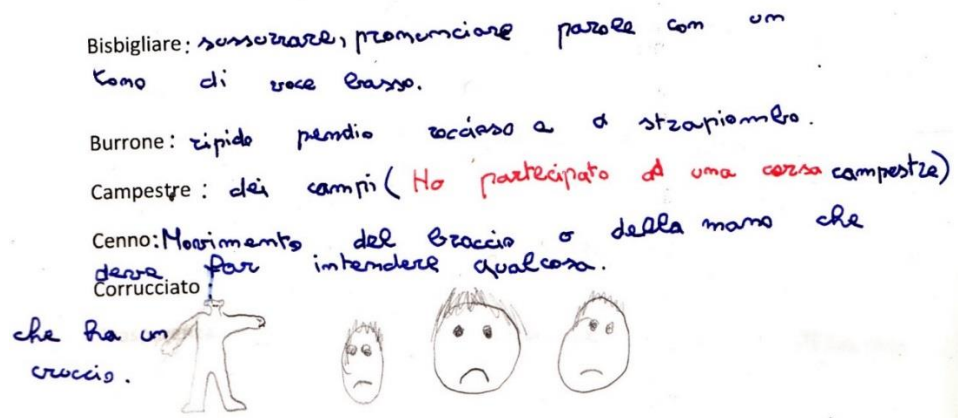 Bisbigliare: sussurrare, pronunciare parole con un
tono di voce basso.
Burrone: ripido pendio roccioso a d strapiombo.
Campestre: dei campi (Ho partecipato ad una corsa campestre)
Cenno: Movimento del braccio o della mano che
deve far intendere qualcosa.
Corrucciato
che ha un
cruccio.